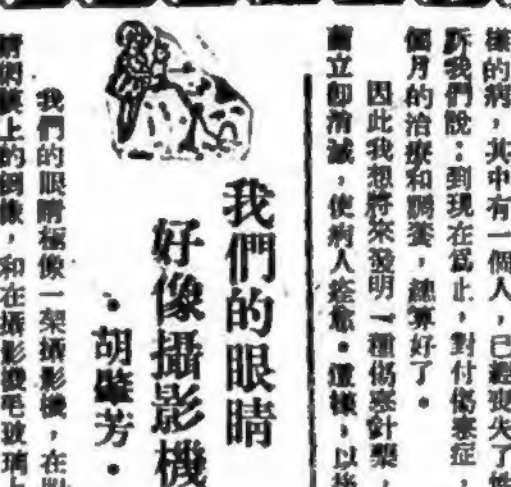 樣的病，其中有一個人，已經喪失了
訴我們說：到現在為止，對付傷寒症，
個月的治療和調養，總算好了。
因此我想將來發明一種傷寒針藥，
菌立即消滅，使病人痊愈。這樣，以後
我們的眼睛
好像攝影機
•胡肇芳•
我們的眼睛極像一架攝影機，在
睛網膜上的倒像，和在攝影機毛玻璃上